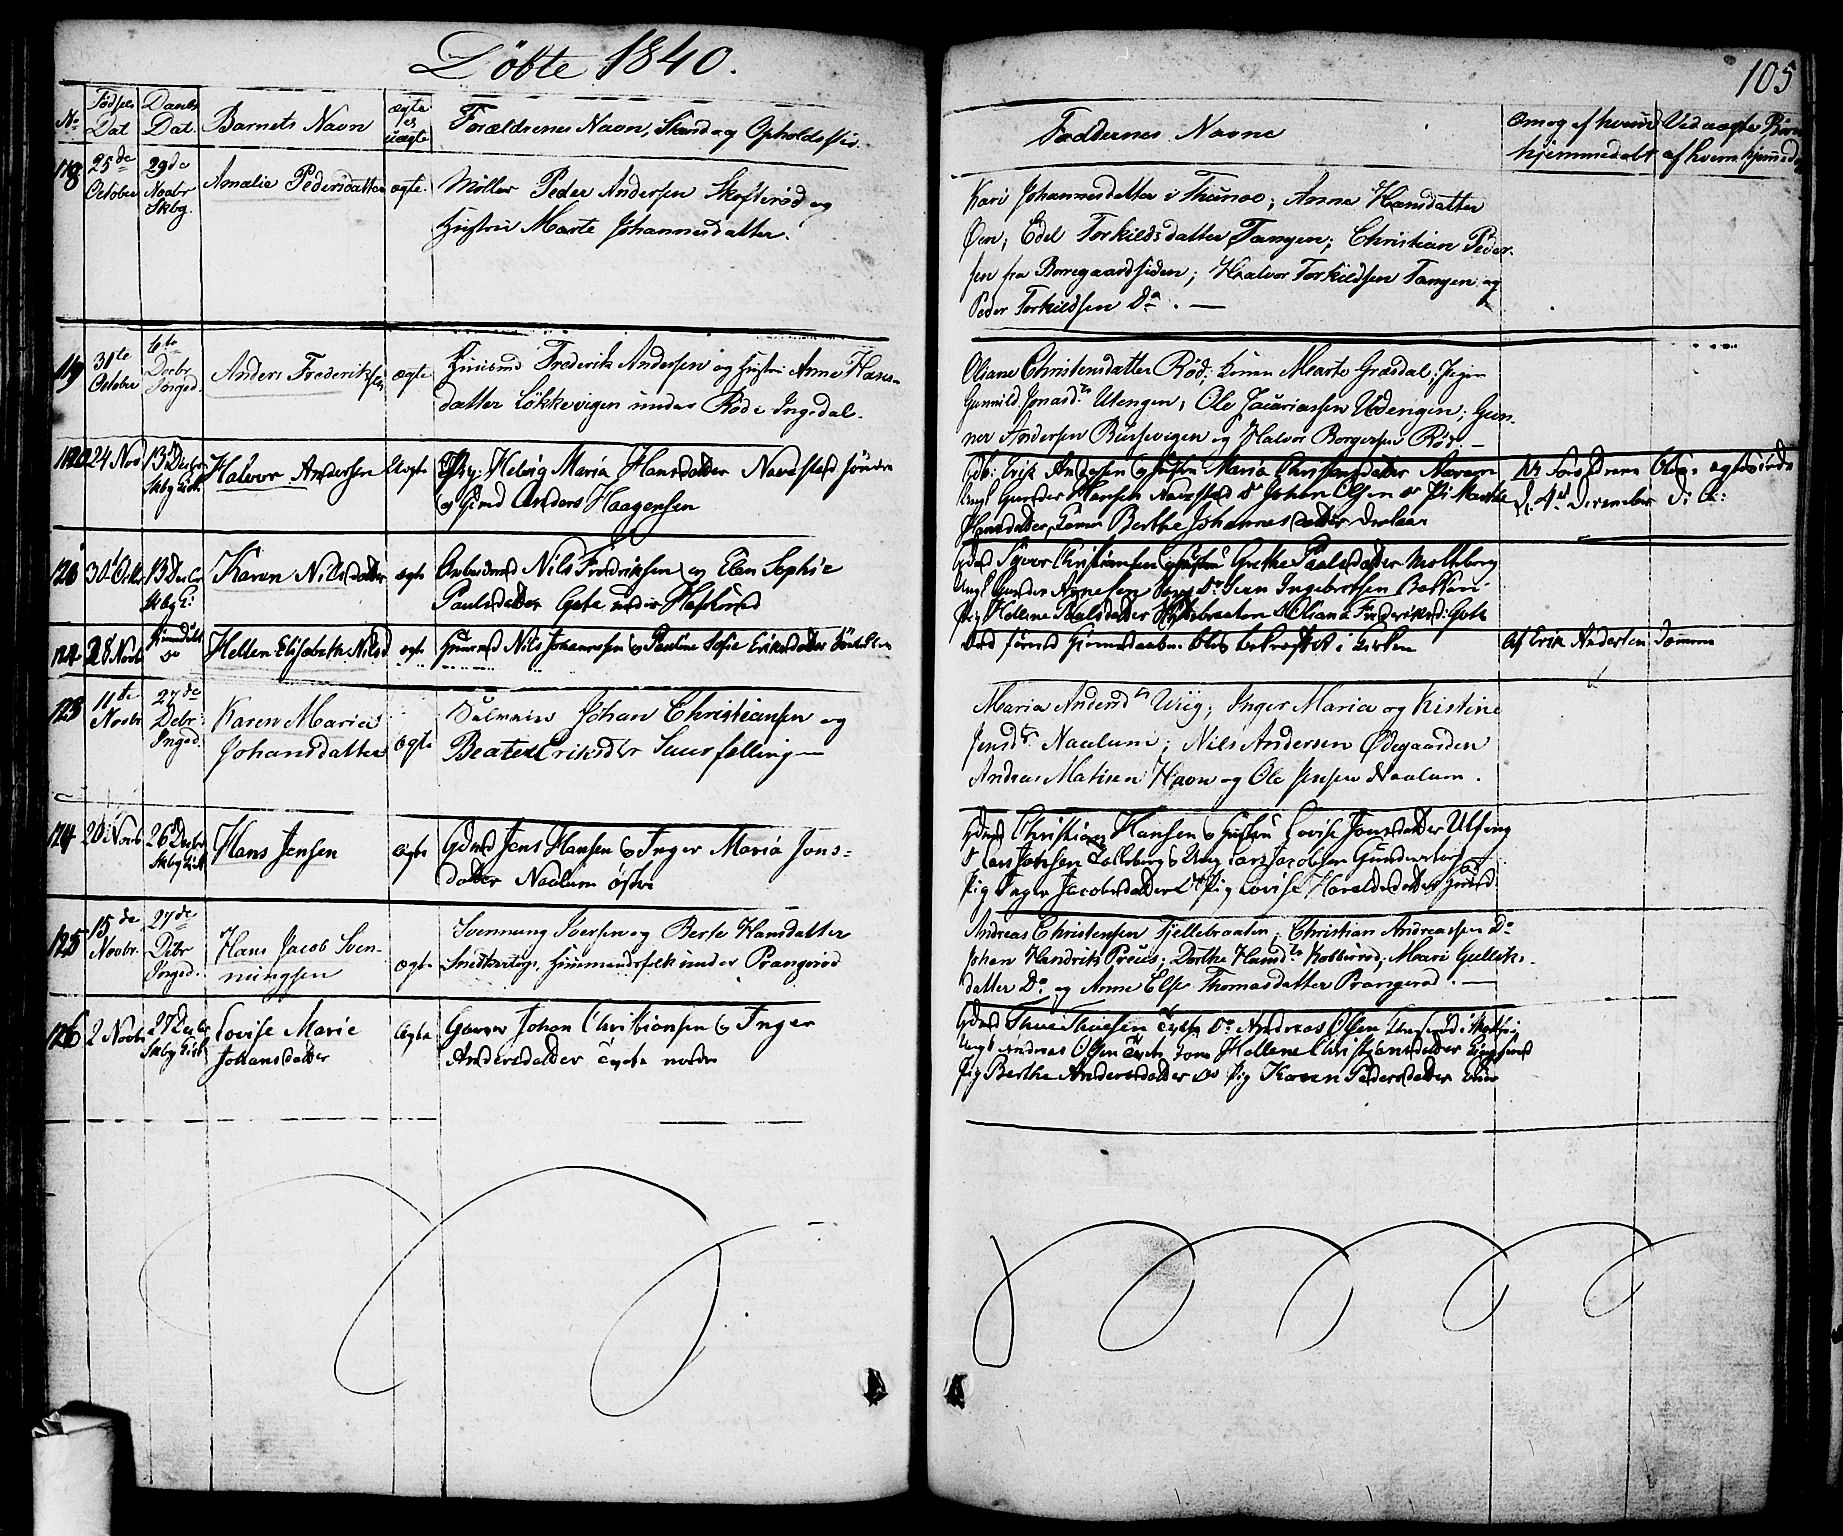 Döbte 1840.
105
No
Födsels Dat
Daabs Dat.
Barnets Navn
ægte el uægte
Forældrenes Navn, Stand og Opholdssted
Faddernes Navne
Om og af hvem hjemmedøbt
Ved uægte Børn af hvem
118
25de October
29de Novbr Skbg.
Amalie Pedersdatter
ægte
Møller Peder Andersen Skofterød og
Hustru Marte Johannesdatter.
Kari Johannesdatter i Thunoe; Anne Hansdatter
Øen; Edel Torkildsdatter Tangen; Christian Peder-
sen fra Borregaardsiden; Halvor Torkildsen Tangen og
Peder Torkildsen Do. —
119
31te October
6te Decbr Inged.
Anders Frederiksen
ægte
Huusmd Frederik Andersen og Hustru Anne Hans-
datter Lökkevigen under Röd i Ingedal.
Oliane Christensdatter Röd; Konen Marte Græsdal; Pigen
Gunnild Jonasdtr Utengen; Ole Zacariassen Udengen; Gun-
ner Andersen Bussevigen og Halvor Borgersen Röd. —
120
24 Nov
13 Decbr Skbg Kirk
Halvor Andersen
Uegte
Pig: Helvig Maria Hansdatter Navestad söndre
og Gmd Anders Haagensen
Gdb: Erik Andersen og Hustru Maria Christiansdatter
Ungk Gunder Hansen Navestad Do Johan Olsen Do Pi Marthe
Hansdatter, Konen Berthe Johannesdatter
d. 4de December
121
30 Octbr
13 Decbr Skbg K:
Karen Nilsdatter
ægte
Arbeidsmd Nils Fredriksen og Elen Sophie
Paulsdatter Gete under Hafslund
Gmd Syver Christiansen og Hustru Grethe Paalsdatter Molteberg
Ungk Gunder Arnesen Do Sven Ingebretsen Bakken
Pig Hellene Paalsdatter Oliana Frederiksd: Gete
122
28 Novbr
Hjemdöbt Do
Hellen Elisabeth Nilsd
ægte
Huusmd Nils Johannesen og Pauline Sofie Eriksdatter
Ved förend Hjemmedaaben blev bekræftet i Kirken
Af Erik Andersen
123
11te Novbr
27de Decbr Inged.
Karen Maria
Johansdatter
ægte
Johan Christiansen og
Beate Eriksdtr Suurfelling —
Maria Andersdtr Viig; Inger Maria og Kistine
Jensdtr Naalum; Nils Andersen Ødegaarden
Andreas Matisen Havn og Ole Jensen Naalum.
124
20 Novb
26 Decbr Skbg Kirk
Hans Jensen
ægte
Gdmd Jens Hansen og Inger Maria Jons-
datter Naalum östre
Gdmd Christian Hansen og Hustru Lovise Jonsdatter Ulfeng
Do Lars Jonsen Kallsberg Ung Lars Jacobsen Gunderstorp
Pig Inger Jacobsdatter Do Pig Lovise Haraldsdatter
125
15de Novbr.
27de Debr Inged.
Hans Jacob Sven-
ningsen
ægte
Svennung Iversen og Berte Hansdatter
Snedkertorp, Huusmandsfolk under Prangerød
Andreas Christensen Fjellebraaten; Christian Andreassen Do
Johan Hendrik Preus; Dorthe Hansdtr Kolbirrød; Mari Gullik-
datter Do og Anne Else Thomasdatter Prangerød. —
126
2 Novbr
27 Decbr Skbg Kirk
Lovise Marie
Johansdatter
ægte
Johan Christiansen og Inger
Andersdatter nordre
Gdmd Thue Thuesen Do Andreas Olsen
Ungk Andreas Olsen Hellene Christiansdatter
Pig Berthe Andersdatter Do Pig Karen Pedersdatter